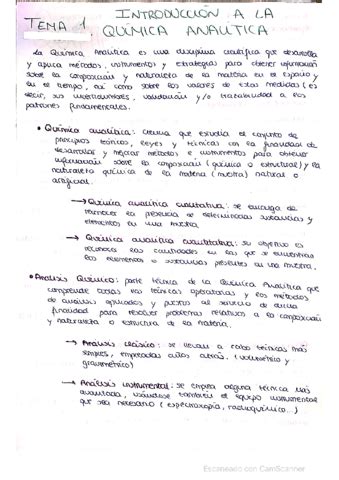 TEMA 1. INTRODUCCIÓN A LA
QUÍMICA ANALÍTICA
La Química Analítica es una disciplina científica que desarrolla
y aplica métodos, instrumentos y estrategias para obtener información
sobre la composición y naturaleza de la materia en el espacio y
en el tiempo, así como sobre los valores de estas medidas (es
decir, sus incertidumbres, validación y/o trazabilidad a los
patrones fundamentales.
• Química analítica: ciencia que estudia el conjunto de
principios teóricos, leyes y técnicas con la finalidad de
desarrollar y mejorar métodos e instrumentos para obtener
información sobre la composición (química o estructural) y la
naturaleza química de la materia (muestra) natural o
artificial.
→ Química analítica cualitativa: se encarga de
reconocer la presencia de determinadas sustancias y
elementos en una muestra.
→ Química analítica cuantitativa: su objetivo es
reconocer las cantidades en las que se encuentran
los elementos o sustancias presentes en una muestra.
• Análisis Químico: parte técnica de la Química Analítica que
comprende todas las técnicas operatorias y los métodos
de análisis aplicados y puestos al servicio de dicha
finalidad para resolver problemas relativos a la composición
y naturaleza o estructura de la materia.
→ Análisis clásico: se llevan a cabo técnicas más
simples, empleadas años atrás. (volumétrico y
gravimétrico)
→ Análisis instrumental: se emplea alguna técnica más
avanzada, usándose también el equipo instrumental
que sea necesario (espectroscopía, radioquímico...)
Escaneado con CamScanner